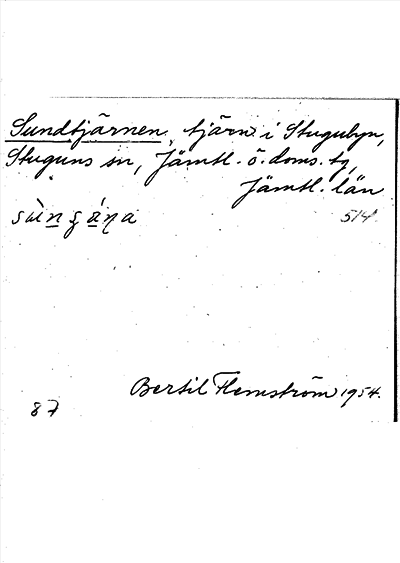 Sundtjärnen, tjärn i Stugubyn,
Stuguns sn, Jämtl. ö. doms. tg,
Jämtl. län
514
Bertil Flemström 1954.
87